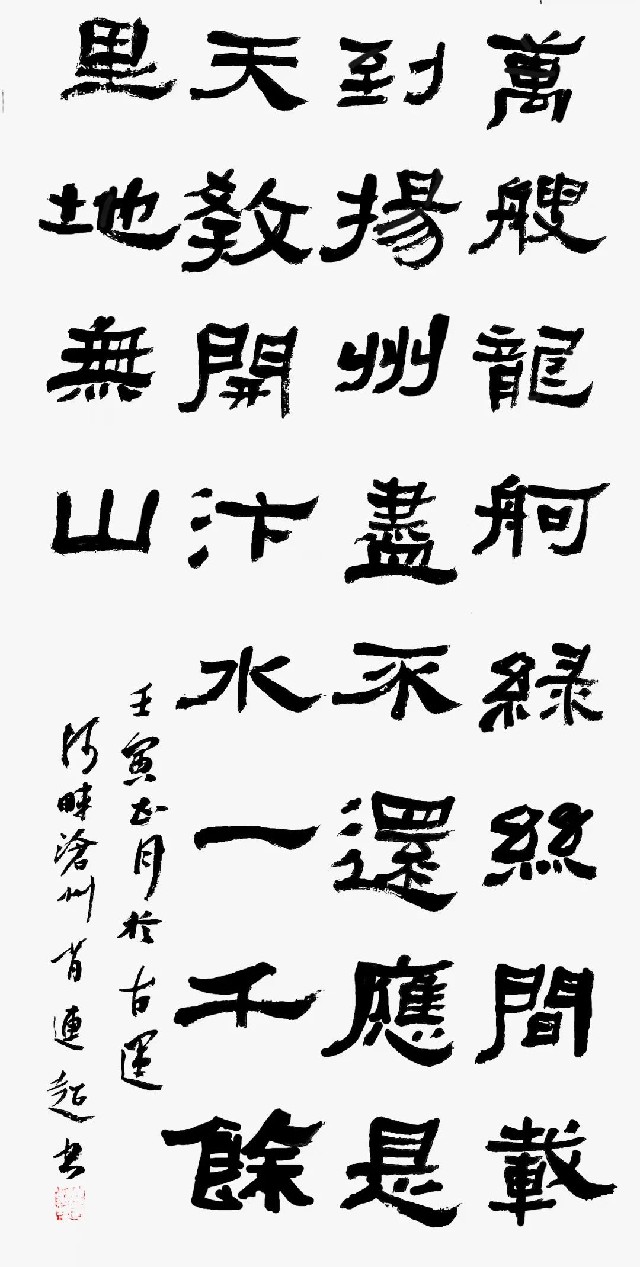 萬艘龍舸綠絲間載
到揚州盡不還應是
天教開汴水一千餘
里地無山
壬寅正月於古運
河畔滄州肖連超书